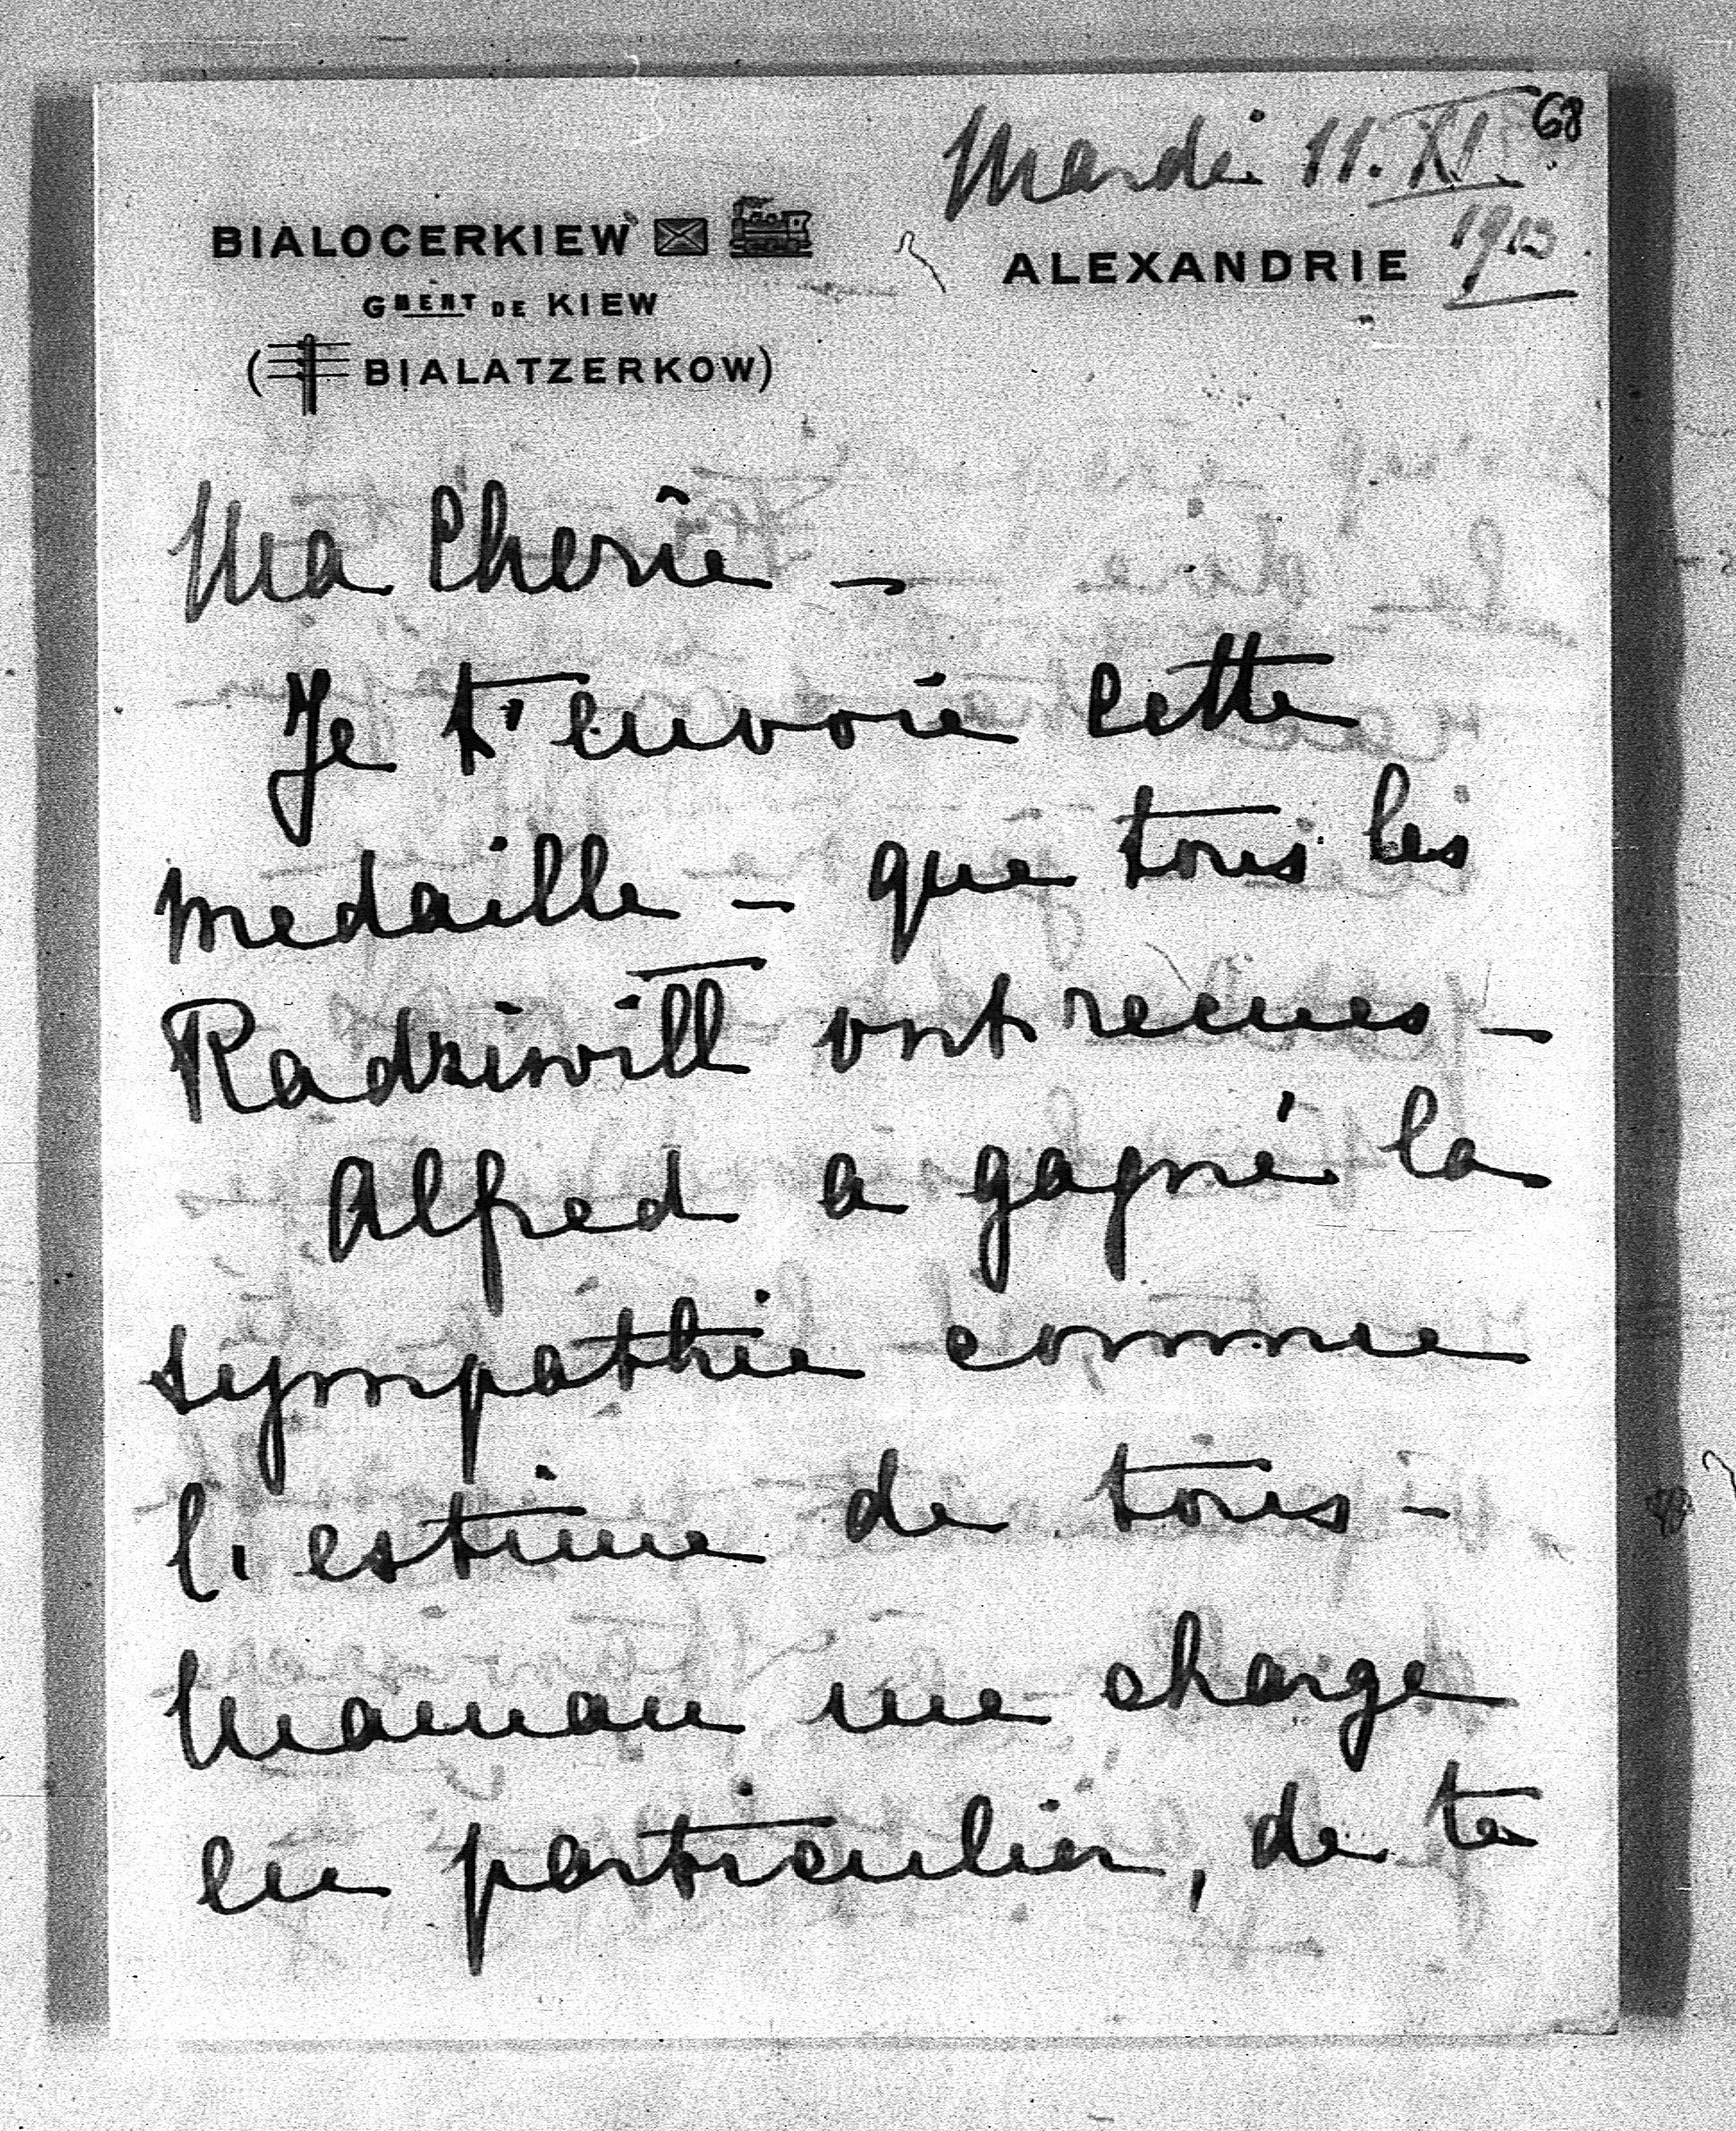 68
Mardi 11. XI.
1913.
BIALOCERKIEW
GMENT DE KIEW
(BIALATZERKOW)
ALEXANDRIE
Ma Cherie –
Je t'envoie cette
medaille – que tous les
Radziwill ont recues –
Alfred a gagné la
sympathie comme
l'estime de tous –
Maman me charge
en particulier, de te